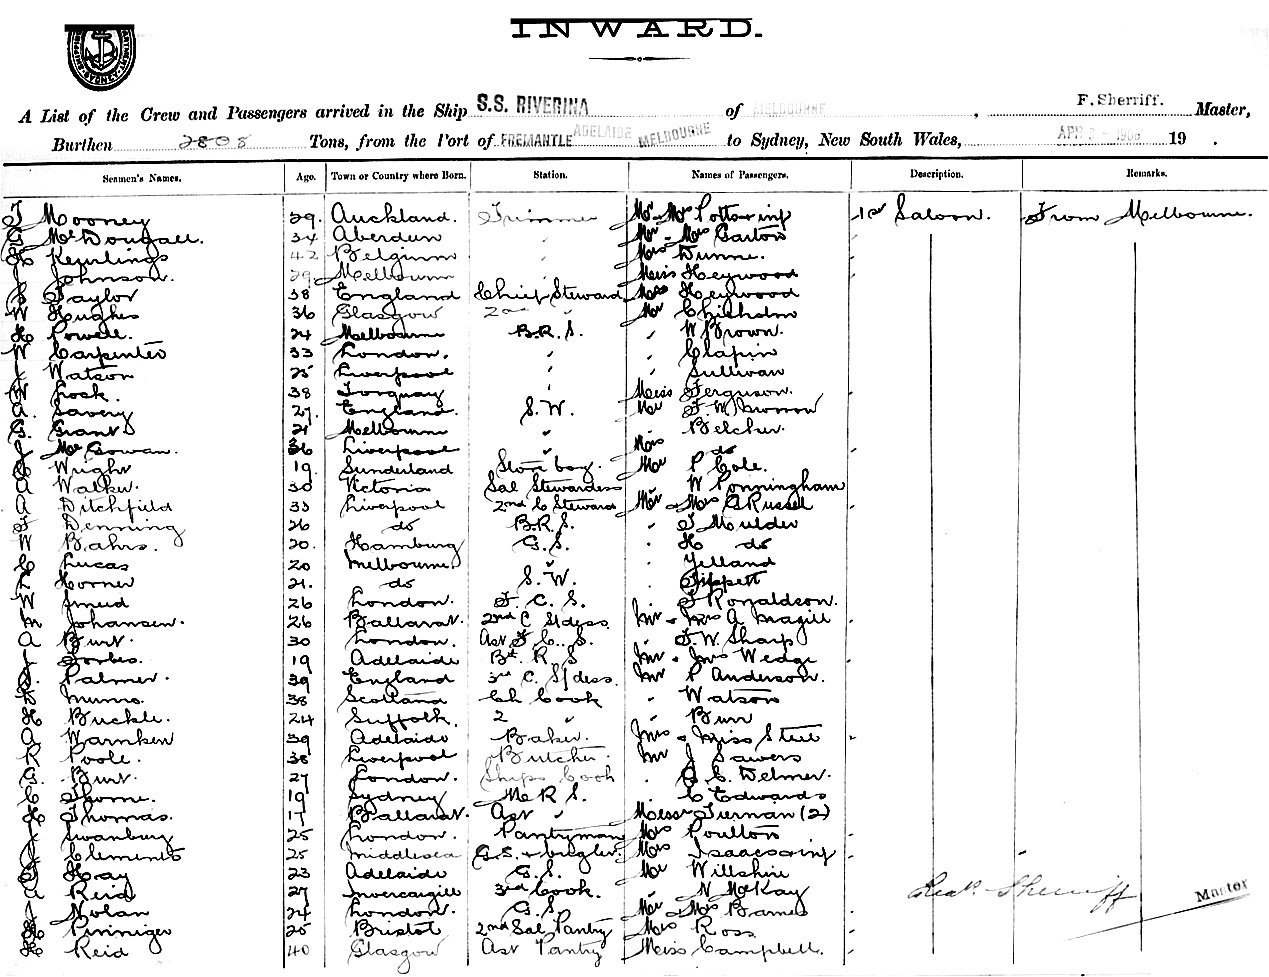 INWARD.
A List of the Crew and Passengers arrived in the Ship S.S. RIVERINA of MELBOURNE, F. Sherriff. Master,
Burthen 2808 Tons, from the Port of FREMANTLE ADELAIDE MELBOURNE to Sydney, New South Wales, 19 .
Seamen's Names. Age. Town or Country where Born. Station. Names of Passengers. Description. Remarks.
J Mooney 29. Auckland. Trimmer Mr & Mrs Potter inf 1st Saloon. From Melbourne.
G McDougall. 34 Aberdeen " Mr & Mrs Barton
H Keurlings 42 Belgium " Mrs Dunne.
J Johnson. 29. Melbourne " Miss Heywood
J Taylor 38 England Chief Steward Miss Heywood
W Hughes 36 Glasgow 2nd " Mr Chisholm
H Powell. 24 Melbourne B.R.S. " W Brown.
W Carpenter 33 London. " " Clapin
J Watson 25 Liverpool " " Sullivan
W Lock. 38 Torquay " Miss Ferguson.
A. Savery 27. England. S.W. Mr F.W.
G. Grant 21 Melbourne " " Belcher.
J McGowan. 36 Liverpool " Mrs do
C Wright 19. Sunderland Store boy. Mr P Cole.
A Walker. 30 Victoria Sal Stewardess W Conningham
A Ditchfield 33 Liverpool 2nd C Steward Mr & Mrs G Russel
F Denning 26 do B.R.S. " J Moulder
W Bahrs. 20. Hamburg G.S. " H do
C Lucas 20 Melbourne. " " Yelland
L Horner 21. do S.W. " Tippett
W Smeed 26 London. F.C.S. " J Ronaldson.
M Johansen. 26 Ballarat. 2nd C S/dess. Mr & Mrs A Magill
A Burt. 30 London. Ast F.C.S. " F.W. Sharp
J Forbes. 19 Adelaide Bt. R.S Mr & Mrs Wedge
J. Palmer. 39 England 3rd C. S/dess. Mr P Anderson.
D Munro. 38 Scotland Ch Cook " Watson
H Buckle. 24 Suffolk. 2 " " Burr
A Warnken 39 Adelaide Baker. Mrs & Miss Steel
R Poole. 38 Liverpool Butcher. Mr J Sawers
G. Burt. 27 London. Ships Cook " G.C. Delmer.
C Thorne. 19 Sydney M.R.S. " C Edwards
H Thomas. 17 Ballarat. Ast " Messrs Tiernan (2)
J Swanbury 25 London. Pantryman Mrs Poulton
J Clements 25 Middlesex G.S. & bugler. Mrs Isaacs & inf
J Hay 23 Adelaide G.S. Mr Willshin
A Reid 27 Invercargill 3rd Cook. " N McKay
J Nolan 24 London. G.S. Mr & Mrs Barnes
H Pinniger 25 Bristol 2nd Sal Pantry Mrs Ross
H Reid 40 Glasgow Ast Pantry Miss Campbell.
Sherriff Master